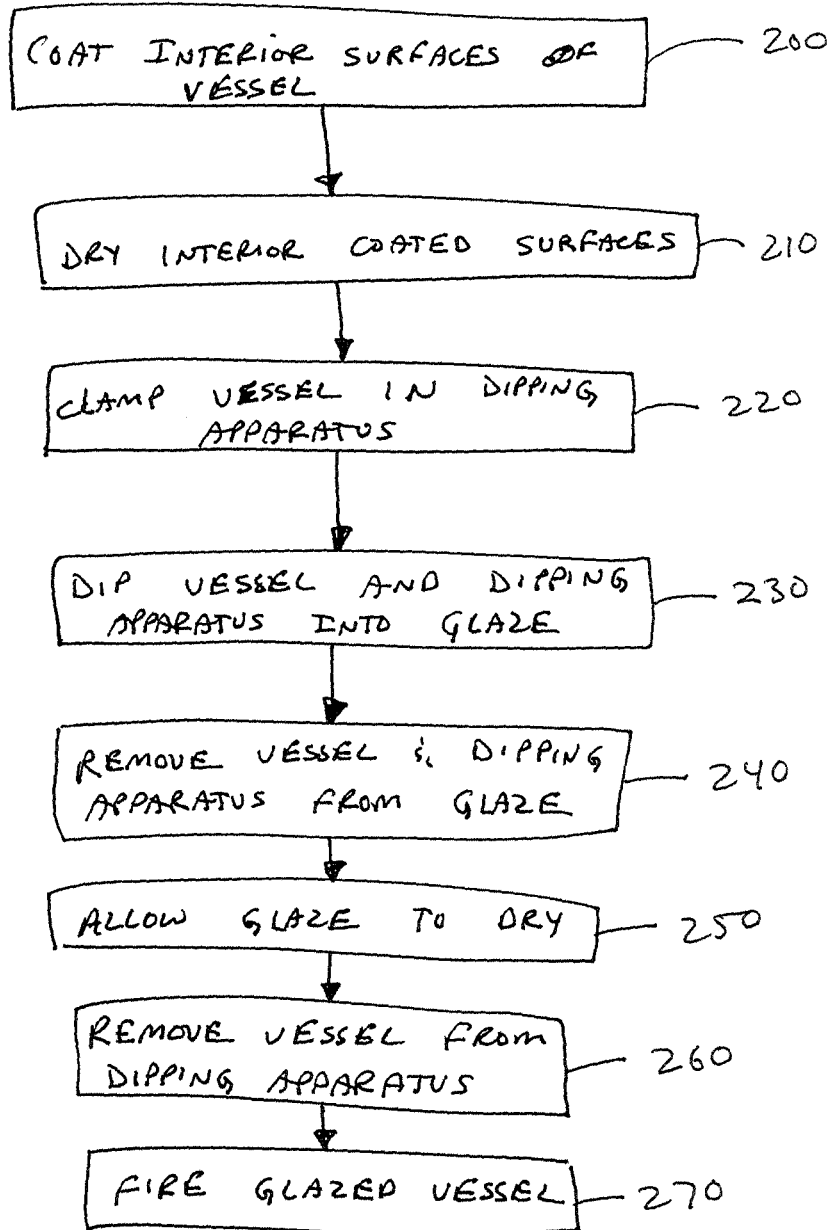 COAT INTERIOR SURFACES OF
VESSEL
200
DRY INTERIOR COATED SURFACES
210
CLAMP VESSEL IN DIPPING
APPARATUS
220
DIP VESSEL AND DIPPING
APPARATUS INTO GLAZE
230
REMOVE VESSEL & DIPPING
APPARATUS FROM GLAZE
240
ALLOW GLAZE TO DRY
250
REMOVE VESSEL FROM
DIPPING APPARATUS
260
FIRE GLAZED VESSEL
270